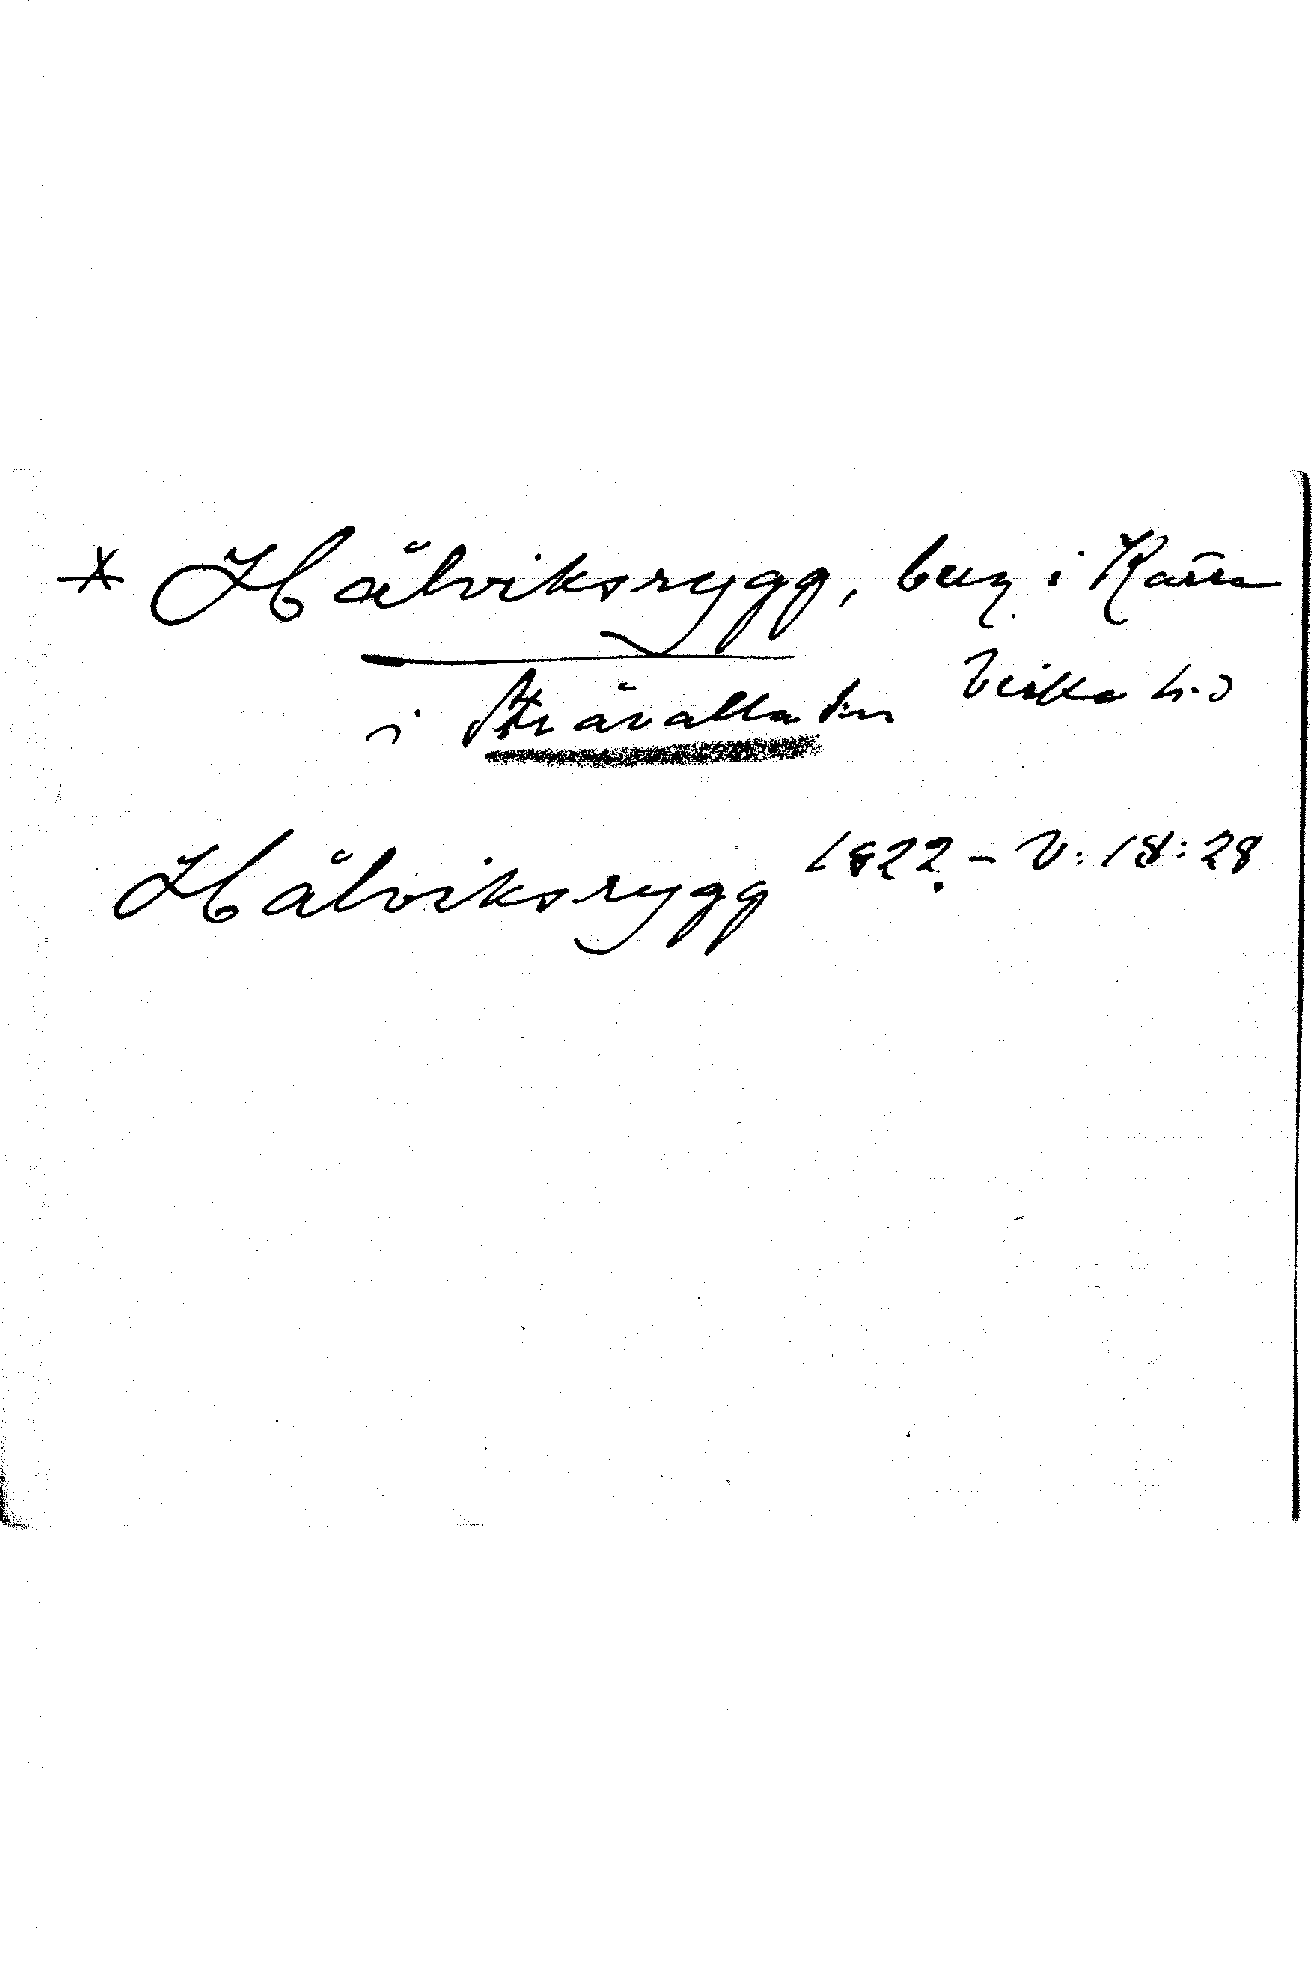 * Hålviksrygg, berg i Kärra
i Stråvalla sn Viske h:d
Hålviksrygg 1822 – V: 18: 28